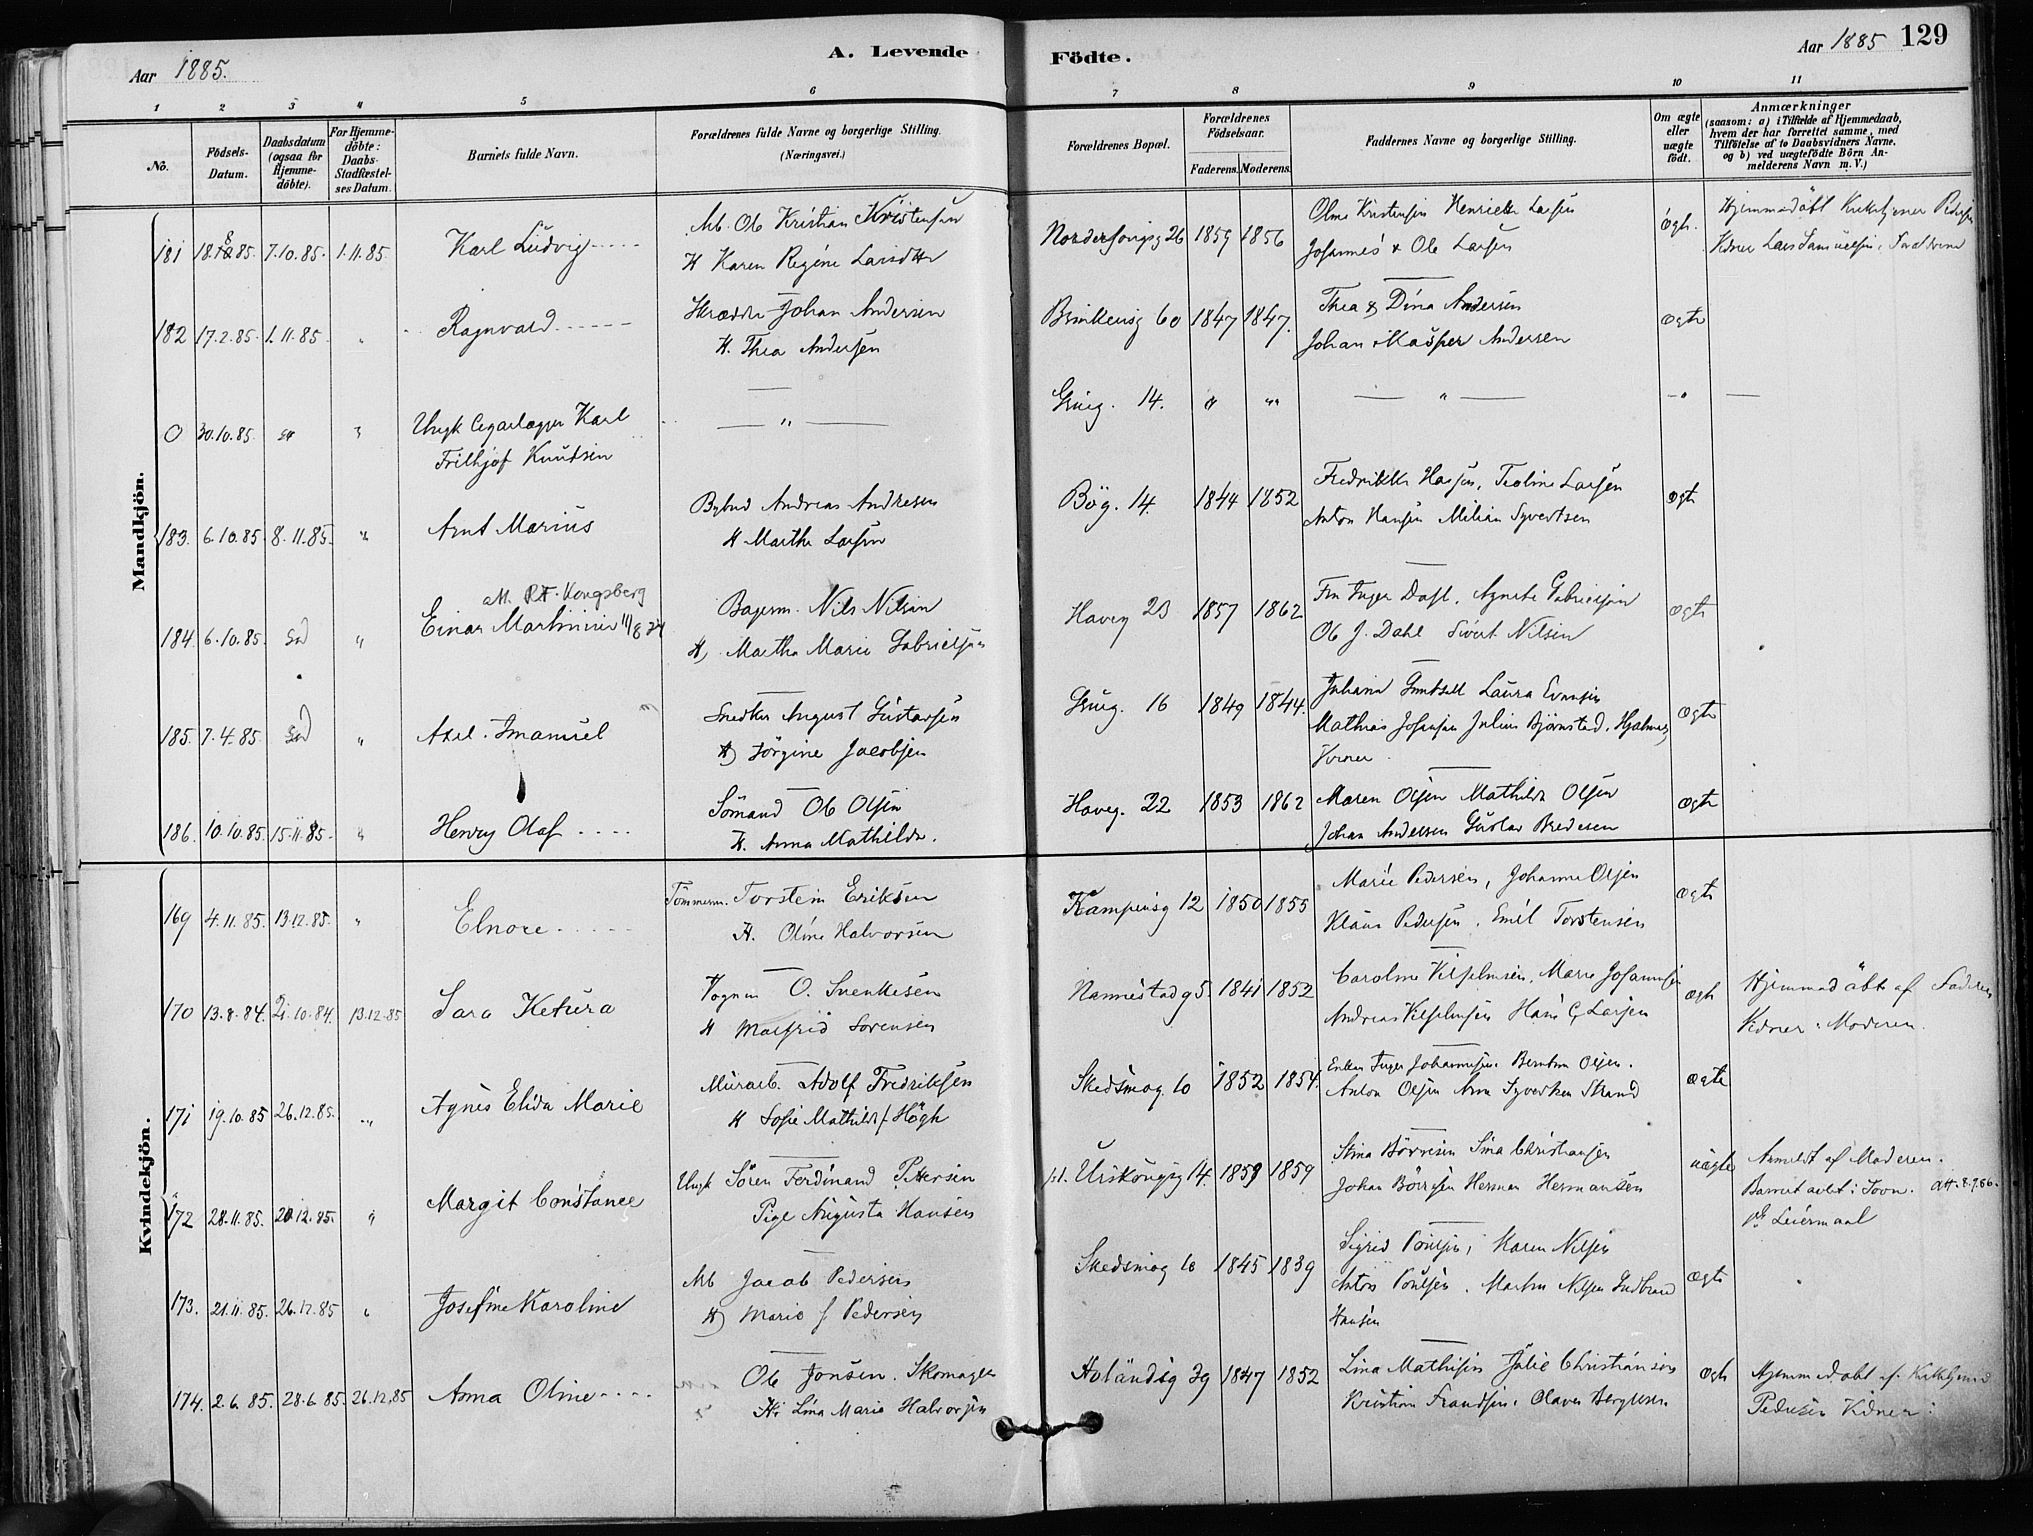 Aar 1885.
A. Levende
Födte.
Aar 1885
129
1 2 3 4 5 6 7 8 9 10 11
No.
Födsels-
Datum.
Daabsdatum
(ogsaa for
Hjemme-
döbte).
For Hjemme-
döbte:
Daabs-
Stadfæstel-
ses Datum.
Barnets fulde Navn.
Forældrenes fulde Navne og borgerlige Stilling.
(Næringsvei.)
Forældrenes Bopæl.
Forældrenes
Födselsaar.
Faderens. Moderens.
Faddernes Navne og borgerlige Stilling.
Om ægte
eller
uægte
födt.
Anmærkninger
(saasom: a) i Tilfælde af Hjemmedaab,
hvem der har forrettet samme, med
Tilföielse af to Daabsvidners Navne,
og b) ved uægtefödte Börn An-
melderens Navn m. V.)
Mandkjön.
181 85. 7.10.85. 1.11.85. Karl Ludvig
Arb. Ole Kristian Kristensen
H Karen Regine Larsdtr
26 1859 1856
Kristensen Henriette Larsen
Johannes & Ole Larsen
Hjemmedöbt Kirketjener
Lars Samuelsen,
182 17.2.85. 1.11.85. " Ragnvald
Skrædder Johan Andersen
H. Thea Andersen
60 1847 1847.
Thea & Dina Andersen
Johan Kasper Andersen
ægte
0 30.10.85. " "
Ungk Karl
Frithjof Knutsen
— " —
14. " "
— " —
183. 6.10.85. 8.11.85. " Arnt Marius
Bybud Andreas Andresen
H Marthe Larsen
Bög. 14. 1844 1852
Fredrikke Hansen, Larsen
Anton Hansen Milian Syvertsen
ægte
att. Kongsberg
184. 6.10.85. " Einar 11/8 24
Nils Nilsen
H Martha Marie Gabrielsen
Haveg 23 1857 1862
Inger Dahl, Agnete Gabrielsen
Ole J. Dahl Sivert Nilsen
ægte
185. 7.4.85. " Axel Imanuel
Snedker August Gustavsen
H Jörgine Jacobsen
16 1849 1844.
Laura Evensen
Mathias Johansen Julius Björnstad,
ægte
186. 10.10.85. 15.11.85. " Henry Olaf
Sömand Ole Olsen
H. Anna Mathilde.
Haveg. 22 1853 1862
Maren Olsen Mathilde Olsen
Johan Andersen Gustav Bredesen
ægte
Kvindekjön.
169 4.11.85. 13.12.85. " Elnore
Tömmerm. Torstein Eriksen
H. Oline Halvorsen
Kampensg 12 1850 1855
Marie Pedersen, Johanne Olsen
Klaus Pedersen, Emil Torstensen
ægte
170 13.8.84. 21.10.84. 13.12.85 Sara Ketura
Vognm O. Svenkesen
H Malfrid Sorensen
Nannestadg 5. 1841 1852
Caroline Vilhelmsen, Marie Johannesen
Andreas Vilhelmsen Hans C. Larsen
ægte
Hjemmedöbt af Faderen
Vidner: Moderen.
171 19.10.85 26.12.85. " Agnes Elida Marie
Murarb. Adolf Fredriksen
H Sofie Mathilde f. Högh
Skedsmog. 10 1852 1854.
Enken Inger Johannesen, Berntine Olsen.
Anton Olsen Syvertsen Strand
ægte
172 28.11.85. 12.85. " Margit Constance
Ungk Sören Ferdinand Pettersen
Pige Augusta Hansen
Urskougsg 14. 1859 1859
Stina Börresen Sina Christiansen
Johan Börresen Herman Hermansen
uægte
Anmeldt af Moderen.
Barnet avlet i Sovn. att. 8.9.86.
Leiermaal
173. 21.11.85. 26.12.85 " Josefine Karoline
Arb Jacob Pedersen
H Marie f Pedersen
Skedsmog 10 1845 1839
Sigrid Poulsen, Karen Nilsen
Anton Poulsen, Martin Nilsen Gudbrand
Hansen
ægte
174. 2.6.85. 28.6.85. 26.12.85 Anna Oline
Ole Jonsen. Skomager
H: Lina Marie Halvorsen
39 1847 1852
Lina Mathisen Julie Christiansen
Kristian Frandsen, Olaves Bergersen
ægte
Hjemmedöbt af Kirketjener
Pedersen Vidner: